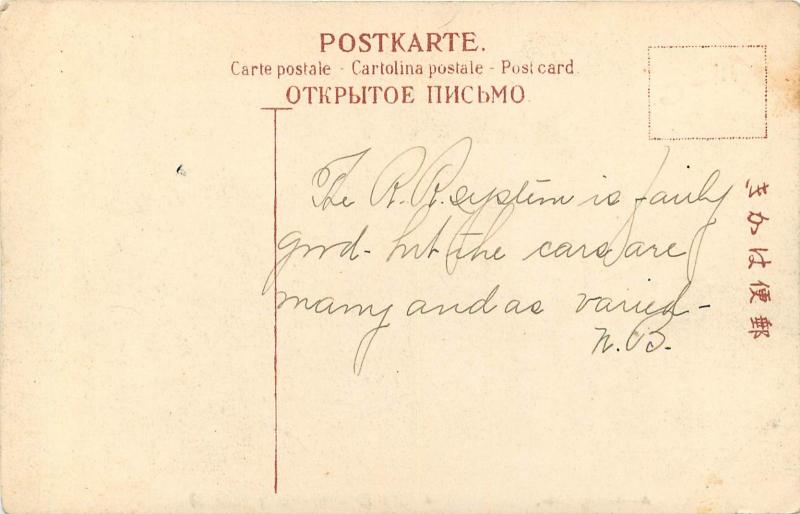 POSTKARTE.
Carte postale - Cartolina postale - Post card
ОТКРЫТОЕ ПИСЬМО
The R. R. system is fairly
good - but the cars are
many and as varied -
N. B.
きかは便郵